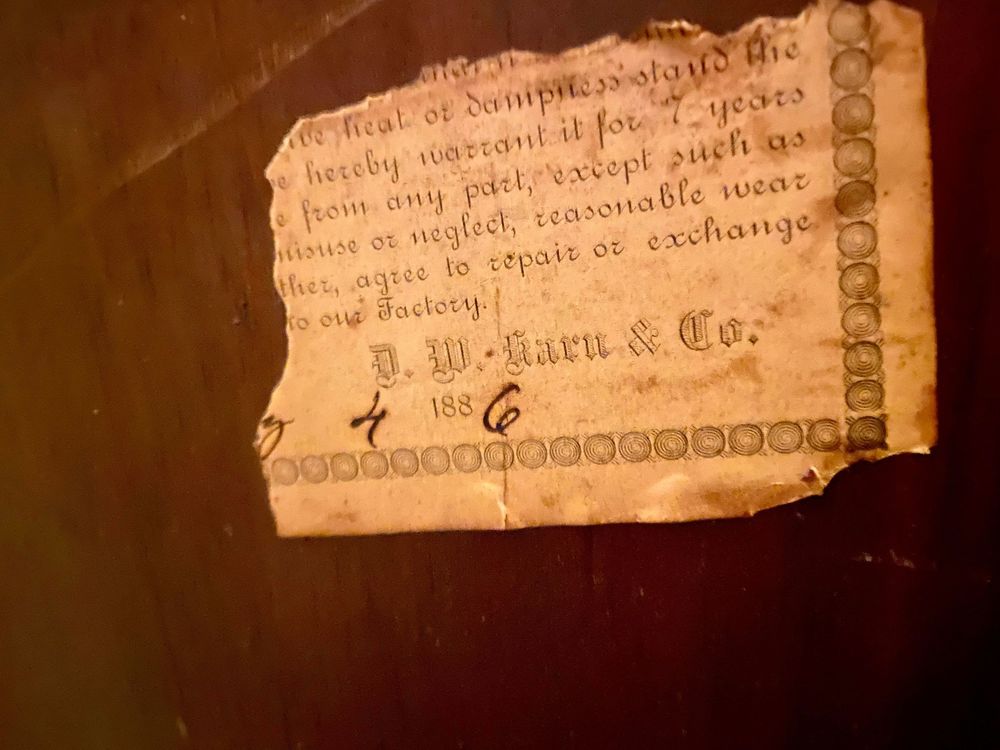 ve heat or dampness stand the
e hereby warrant it for 7 years
e from any part, except such as
misuse or neglect, reasonable wear
ther, agree to repair or exchange
to our Factory.
D. W. Karn & Co.
4 1886